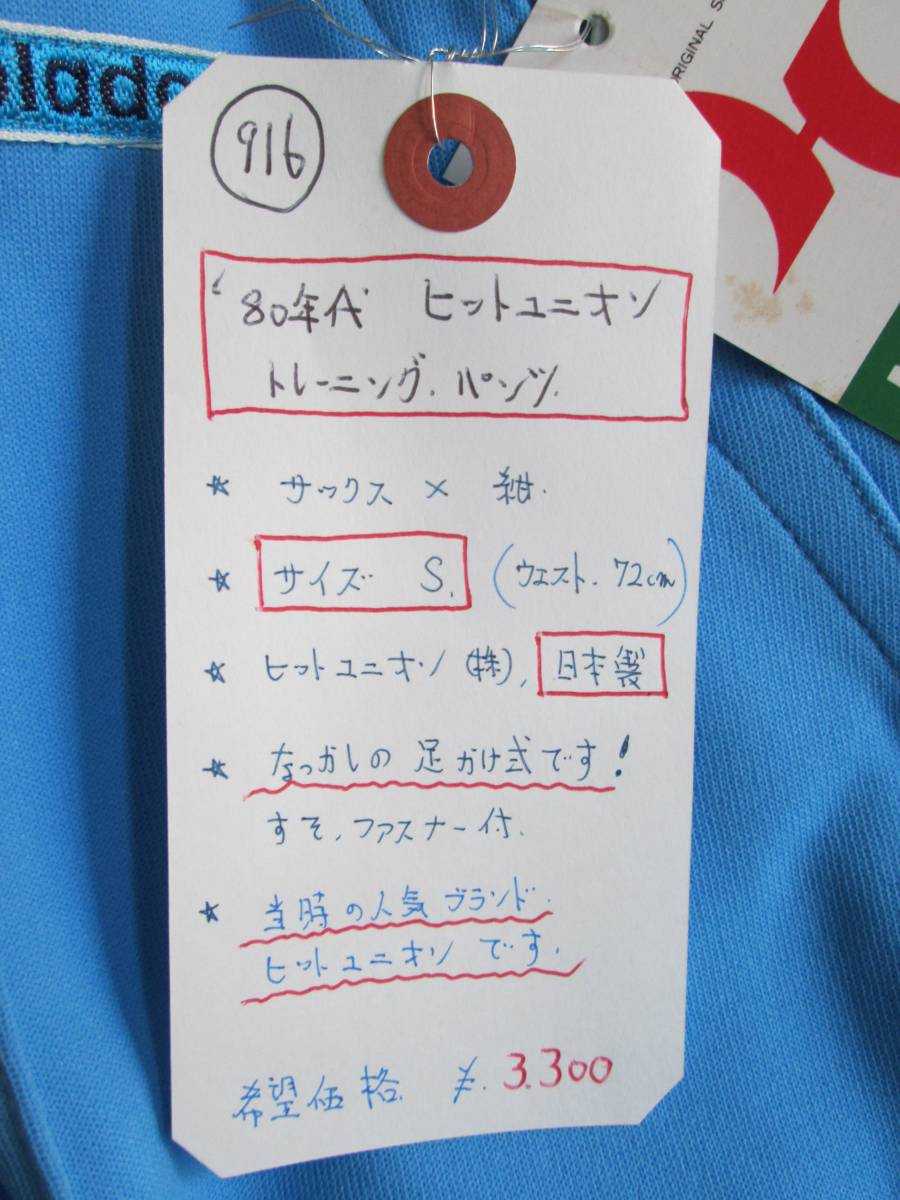 lade
RIGINAL S
916
'80年代 ヒットユニオン
トレーニング.パンツ.
☆ サックス × 紺.
☆ サイズ S. (ウエスト.72cm)
☆ ヒットユニオン(株), 日本製
☆ なつかしの足かけ式です!
すそ,ファスナー付.
☆ 当時の人気ブランド.
ヒットユニオンです.
希望価格 ¥.3.300